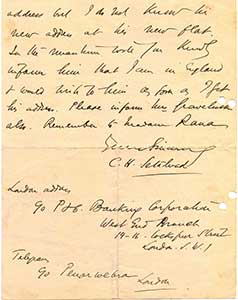 address but I do not know his
new address at his new flat.
In the meantime could you kindly
inform him that I am in England
& would write to him as soon as I get
his address. Please inform him
also. Remember to Madam Rana
Yours Sincerely
C. H. Setalvad
London address
c/o P & O. Banking Corporation
West End Branch
14-16, Cockspur Street
London. S. W. 1
Telegram
c/o
London